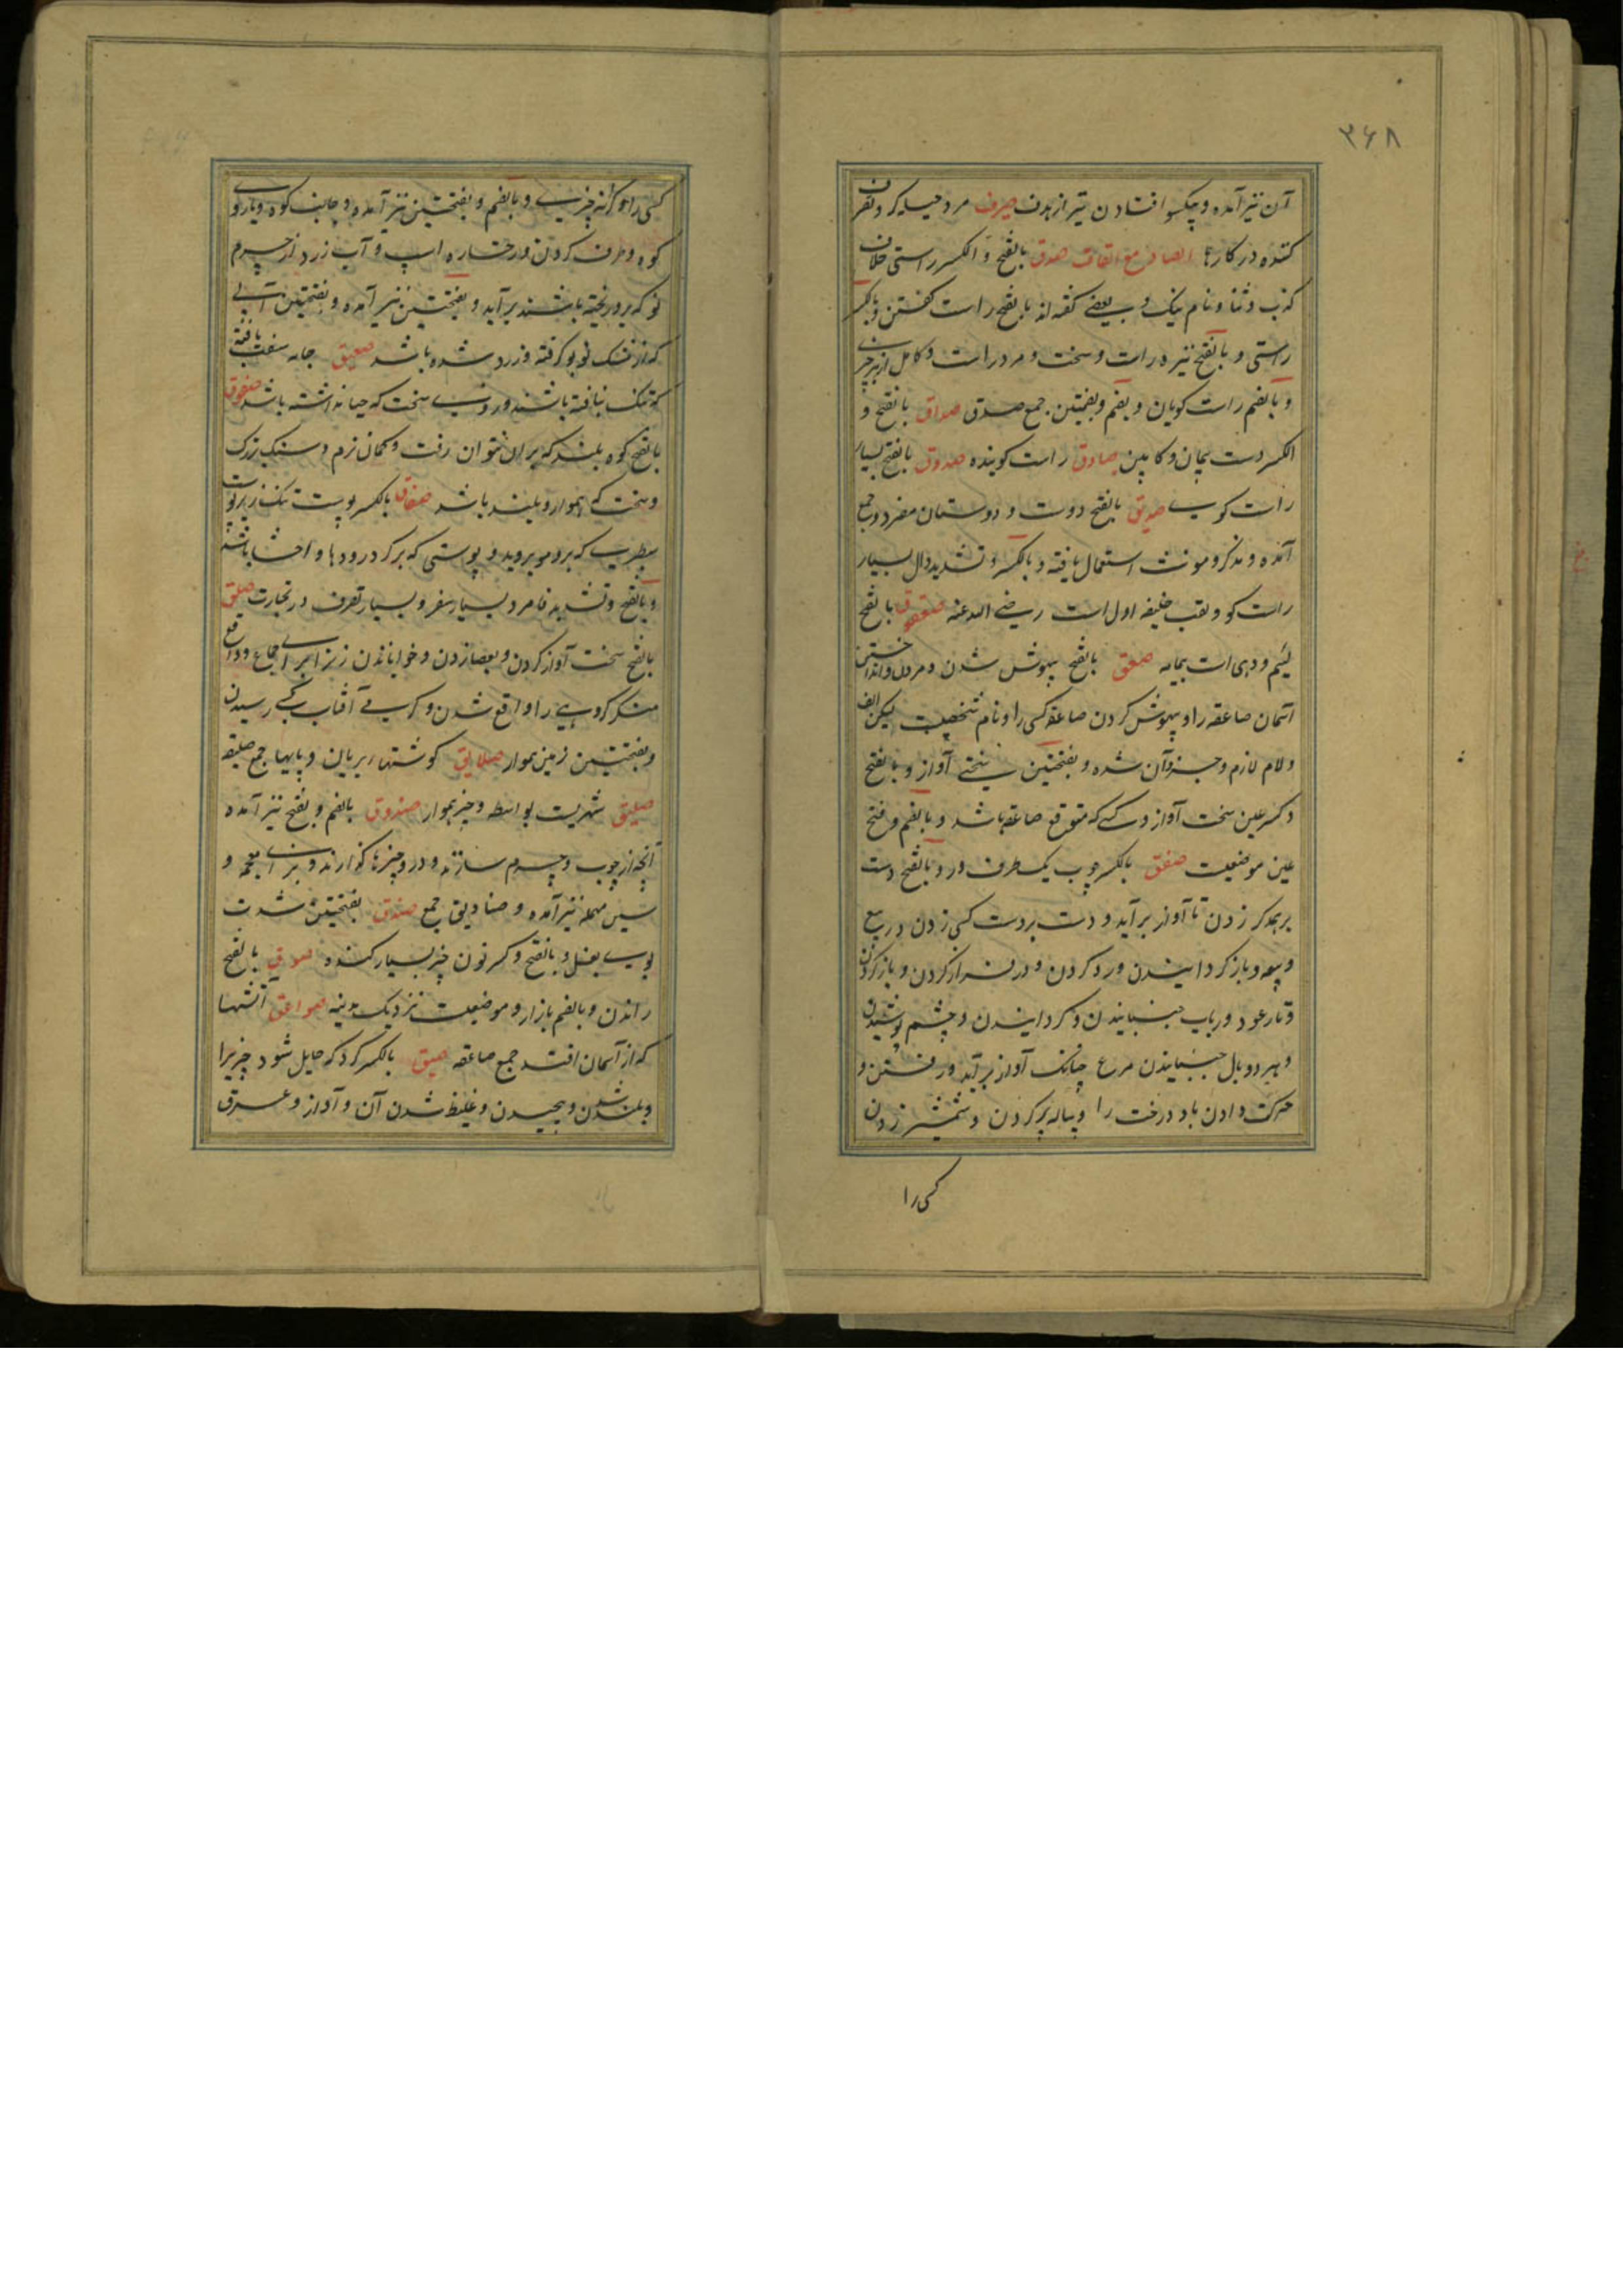 ۳۶۸
آن نیز آمده و یکسو افتادن تیر از هدف صیرف مرد حیله کر و تصرف
کننده در کارها الصاد مع القاف صدق بالفتح و الکسر راستی خلاف
کذب و ثنا و نام نیک و بعضے کفته اند بالفتح راست کفتن و بالکسر
راستی و بالفتح نیزه راست و سخت و مرد راست و کامل از هر چیز
و بالضم راست کویان و بضم و بضمتین جمع صدق صداق بالفتح و
الکسر دست پیمان و کابین صادق راست کوینده صدوق بالفتح بسیار
راست کوے صدیق بالفتح دوست و دوستان مفرد و جمع
آمده و مذکر و مونث استعمال یافته و بالکسر و تشدید دال بسیار
راست کو و لقب خلیفه اول است رضے الله عنه صعفوق بالفتح
لئیم و دهی است بیمامه صعق بالفتح بیهوش شدن و مردن و انداختن
آسمان صاعقه را و بیهوش کردن صاعقه کسی را و نام شخصیست لیکن الف
و لام لازم و جزو آن شده و بفتحتین سختے آواز و بالفتح
و کسر عین سخت آواز و کسے که متوقع صاعقه باشد و بالضم و فتح
عین موضعیست صفق بالکسر چوب یکطرف در و بالفتح دست
بر همدکر زدن تا آواز بر آید و دست بر دست کسی زدن در بیع
و بیعه و باز کردانیدن و رد کردن و در فراز کردن و باز کردن
و تار عود و رباب جنبانیدن و کردانیدن و چشم پوشیدن
و هر دو بال جنبانیدن مرغ چنانک آواز بر آید و رفتن و
حرکت دادن باد درخت را و پیاله پر کردن و شمشیر زدن
کسی را
کسی را و کرانه چیزے و بالضم و بفتحتین نیز آمده و جانب کوه و یا روے
کوه و صرف کردن و رخساره اسپ و آب زرد از چرم
نو که برو ریخته باشند بر آید و بفتحتین نیز آمده و بفتحتین آبے
که از مشک نو بو کرفته و زرد شده باشد صفیق جامه سفت بافته
که تنک نبافته باشند و روے سخت که حیا نداشته باشد صفوق
بالفتح کوه بلند که بر آن نتوان رفت و کمان نرم و سنک بزرک
و سخت که هموار و بلند باشد صفاق بالکسر پوست تنک زیر پوست
سطبرے که برو مو بروید و پوستی که بر کرد رودها و احشا باشد
و بالفتح و تشدید فا مرد بسیار سفر و بسیار تصرف در تجارت صلق
بالفتح سخت آواز کردن و بعصا زدن و خوابانیدن زن را براے جماع و واقع
منکر کروهے را و واقع شدن و کرمے آفتاب بکسے رسیدن
و بفتحتین زمین هموار صلایق کوشتهاء بریان و پایها جمع صلیقه
صلیق شهریست بواسط و چیز هموار صندوق بالضم و بفتح نیز آمده
آنچه از چوب و چرم سازند و درو چیزها کذارند و بزاے معجمه و
سین مهمله نیز آمده و صنادیق جمع صنق بفتحتین شدت
بوے بغل و بالفتح و کسر نون چیز بسیار کنده صوق بالفتح
راندن و بالضم بازار و موضعیست نزدیک مدینه صواعق آتشها
که از آسمان افتد جمع صاعقه صیق بالکسر کرد که حایل شود چیزیرا
و بلند شدن و پیچیدن و غلیظ شدن آن و آواز و عرق